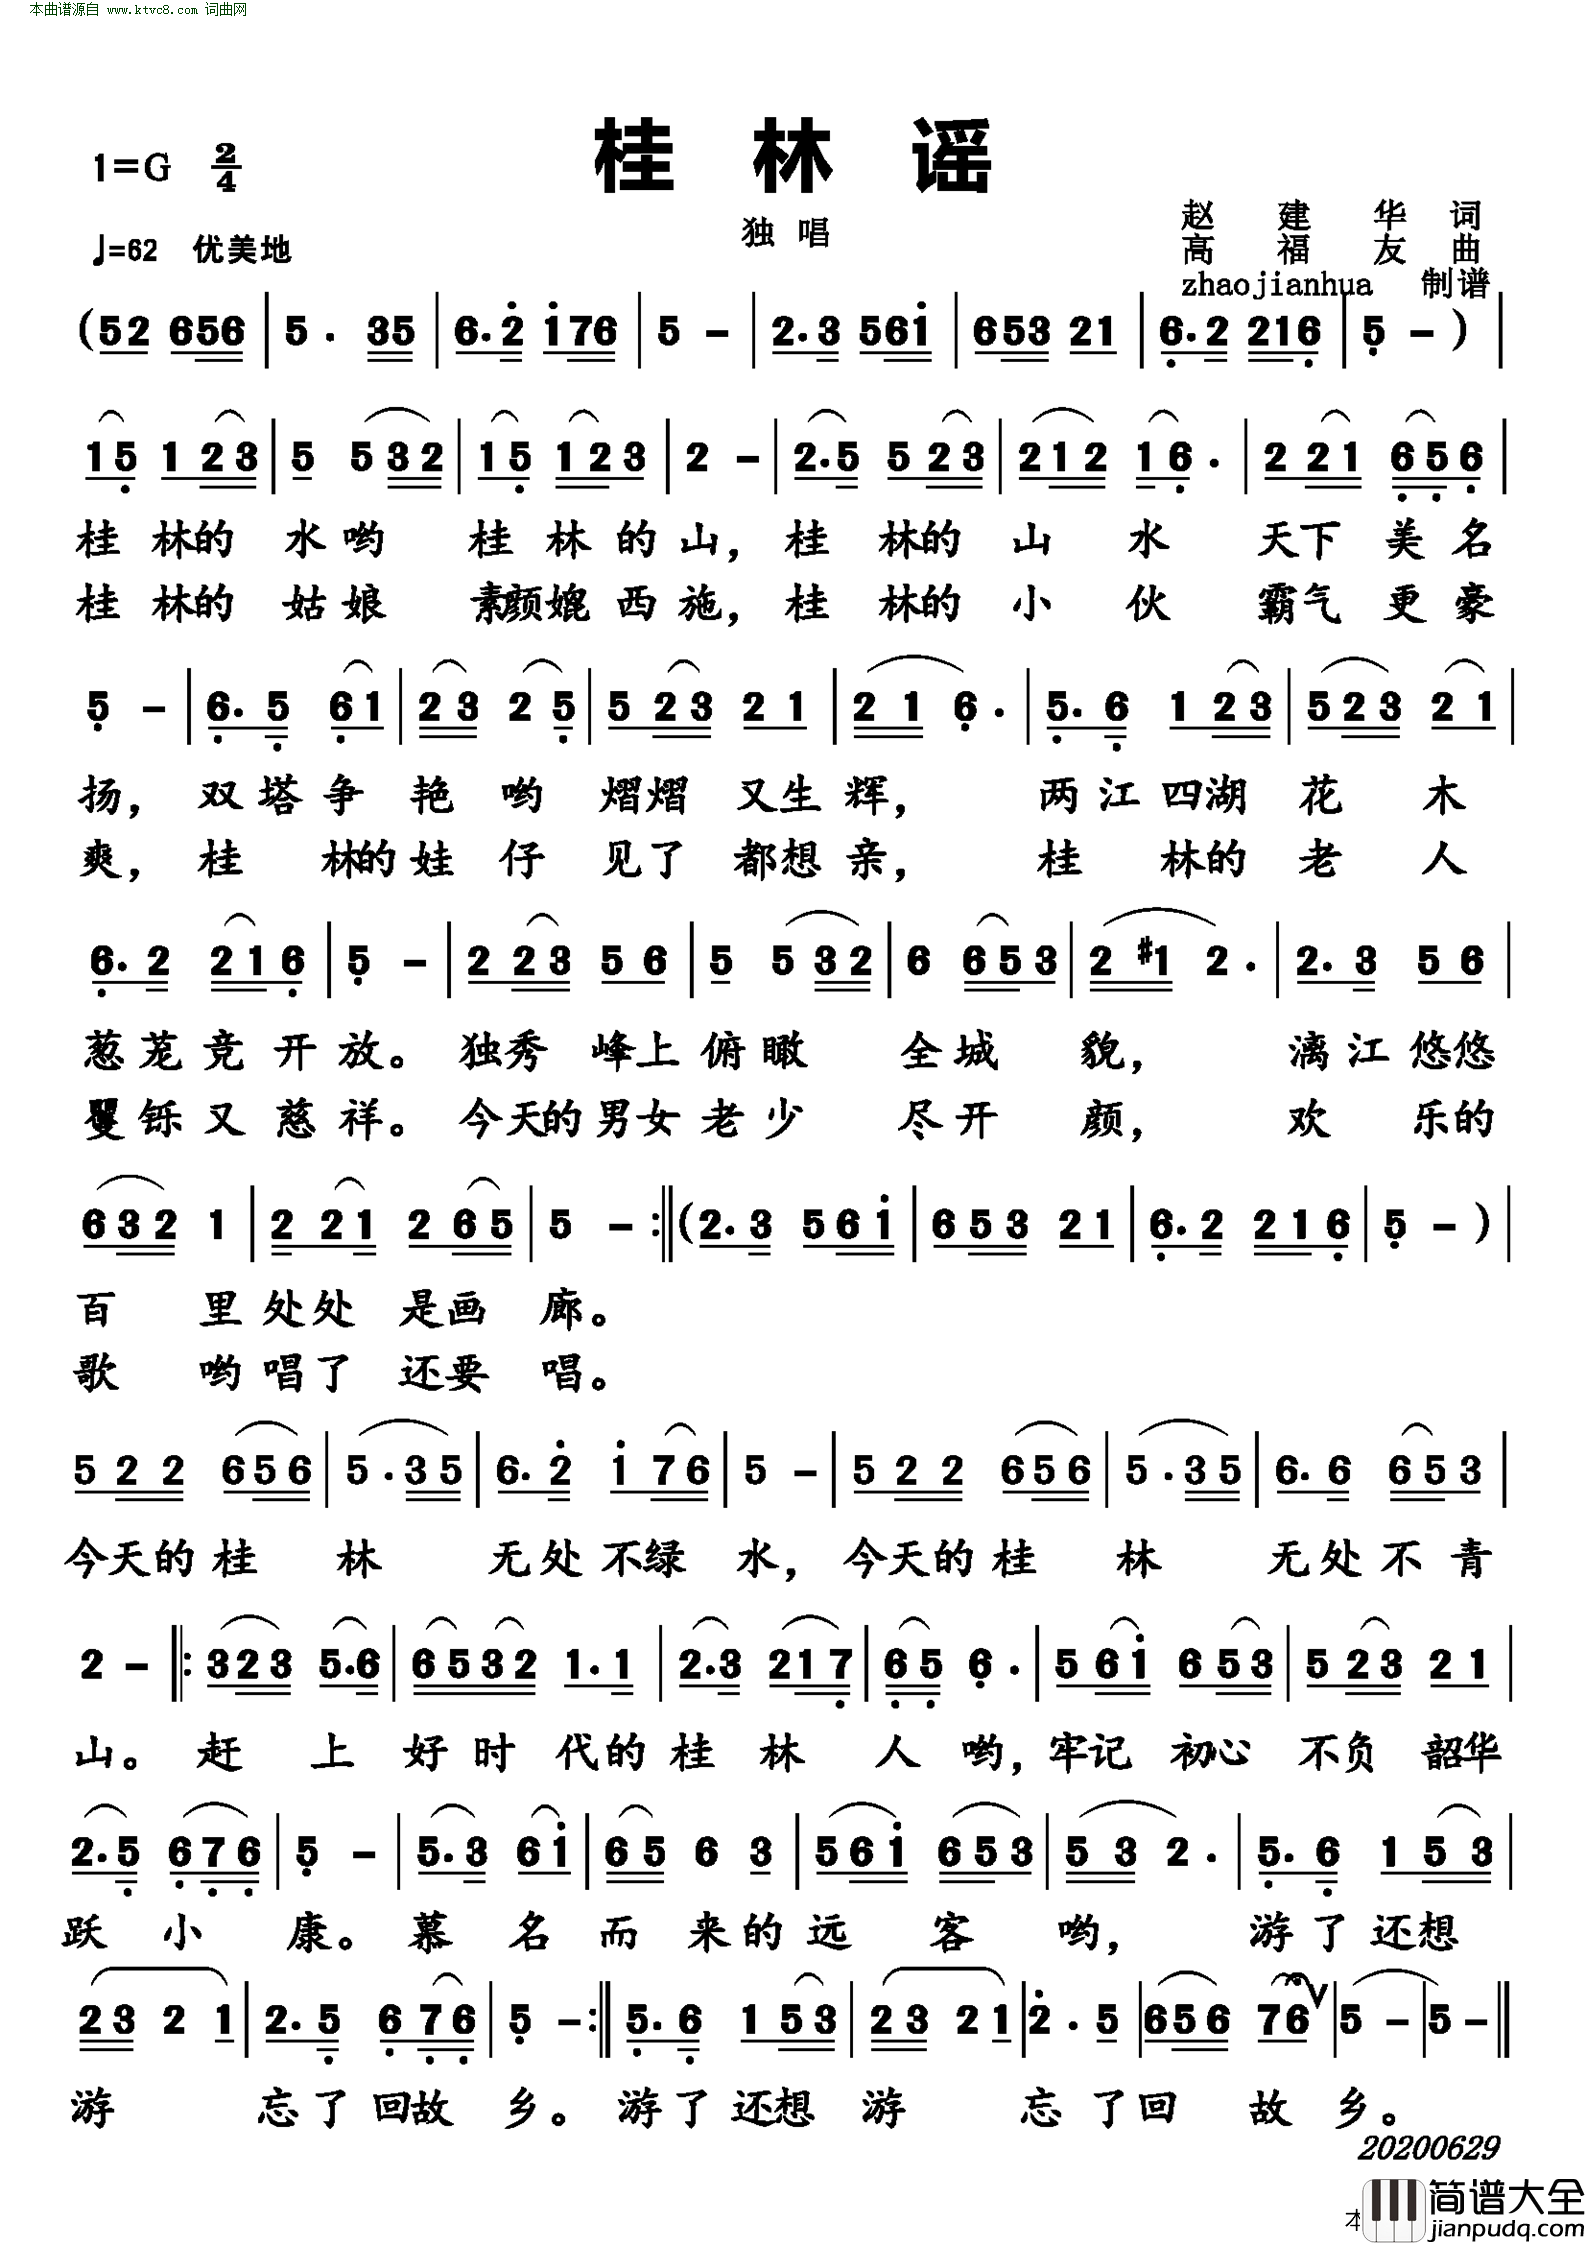 本曲谱源自 www.ktvc8.com 词曲网
桂 林 谣
1=G 2/4
独 唱
赵 建 华 词
♩=62 优美地
高 福 友 曲
zhaojianhua 制谱
(52 656 | 5 . 35 | 6.2 176 | 5 - | 2.3 561 | 653 21 | 6.2 216 | 5 - ) |
15 1 23 | 5 532 | 15 123 | 2 - | 2.5 5 23 | 212 16. | 2 21 656 |
桂 林的 水哟 桂 林 的山，桂 林的 山 水 天下 美名
桂 林的 姑娘 素颜媲西施，桂 林的 小 伙 霸气 更豪
5 - | 6.5 61 | 23 25 | 5 23 21 | 21 6. | 5.6 1 23 | 523 21 |
扬，双塔争 艳 哟 熠熠 又生 辉， 两江四湖 花 木
爽，桂 林的娃 仔 见了 都想 亲， 桂 林的 老 人
6.2 216 | 5 - | 2 23 56 | 5 532 | 6 653 | 2 #1 2. | 2.3 56 |
葱茏 竞开 放。 独秀 峰上 俯瞰 全城 貌， 漓江 悠悠
矍铄 又慈 祥。 今天的男女 老少 尽开 颜， 欢 乐的
632 1 | 2 21 2 65 | 5 - :‖(2.3 561 | 653 21 | 6.2 216 | 5 - ) |
百 里 处处 是画 廊。
歌 哟 唱了 还要 唱。
522 656 | 5.35 | 6.2 176 | 5 - | 522 656 | 5.35 | 6.6 653 |
今天的 桂 林 无处 不绿 水，今天的 桂 林 无处 不 青
2 - ‖: 323 5.6 | 6532 1.1 | 2.3 217 | 65 6. | 561 653 | 523 21 |
山。赶 上 好 时 代的 桂 林 人 哟，牢记 初心 不负 韶华
2.5 676 | 5 - | 5.3 61 | 65 6 3 | 561 653 | 53 2. | 5.6 1 53 |
跃 小 康。慕 名 而 来的 远 客 哟， 游了 还想
23 2 1 | 2.5 676 | 5 - :‖ 5.6 1 53 | 23 21 | 2 . 5 | 656 76 ∨ | 5 - | 5 - ‖
游 忘了 回故 乡。游了 还想 游 忘了回 故 乡。
20200629
本
简谱大全
jianpudq.com